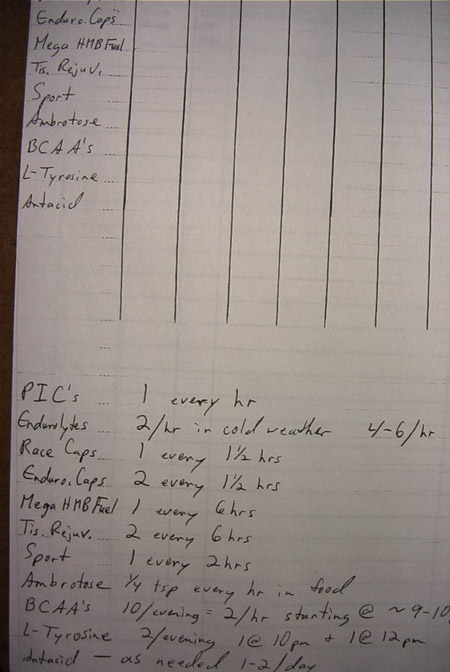 Enduro. Caps
Mega HMB Fuel
Tis. Rejuv.
Sport
Ambrotose
BCAA's
L-Tyrosine
Antacid
PIC's 1 every hr
Endurolytes 2/hr in cold weather 4-6/hr
Race Caps 1 every 1 1/2 hrs
Enduro. Caps 2 every 1 1/2 hrs
Mega HMB Fuel 1 every 6 hrs
Tis. Rejuv. 2 every 6 hrs
Sport 1 every 2 hrs
Ambrotose 1/4 tsp every hr in food
BCAA's 10/evening = 2/hr starting @ ~ 9-10
L-Tyrosine 2/evening 1 @ 10pm + 1 @ 12pm
Antacid — as needed 1-2/day